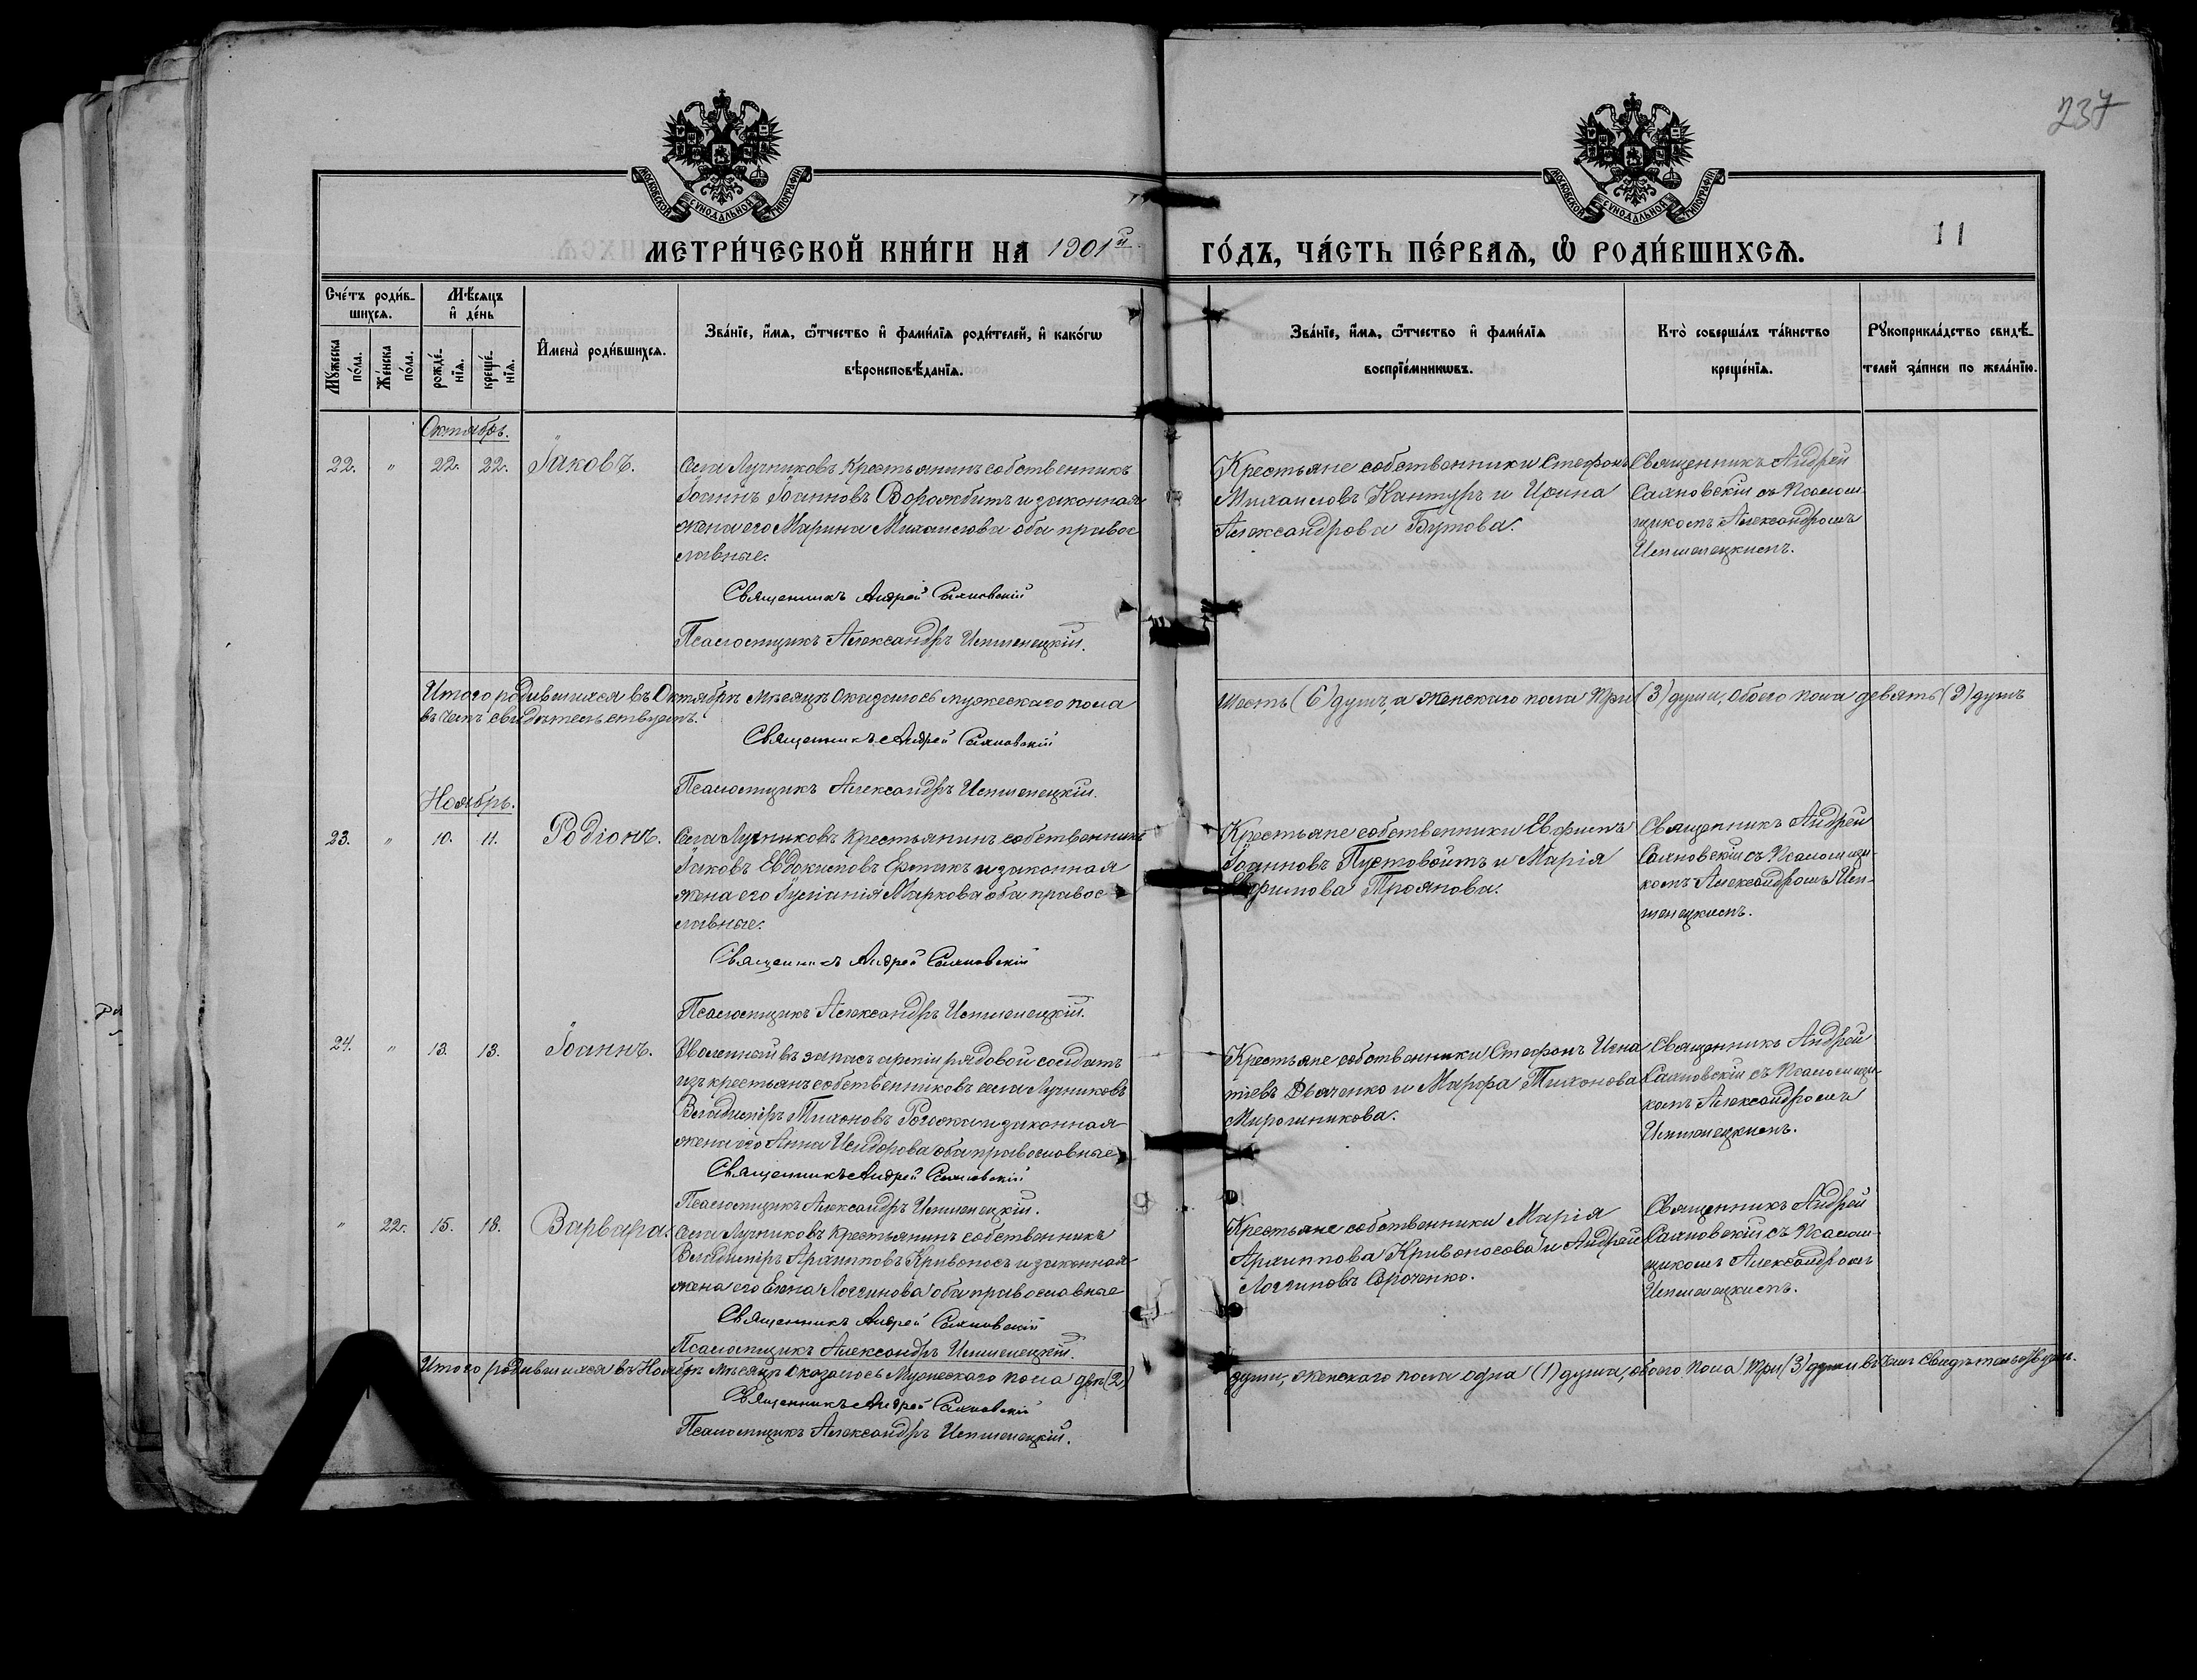 237
МОСКОВСКОЙ СѴНОДАЛЬНОЙ ТИПОГРАФІИ
МОСКОВСКОЙ СѴНОДАЛЬНОЙ ТИПОГРАФІИ
11
МЕТРИ́ЧЕСКОЙ КНИ́ГИ НА 1901й ГО́ДЪ, ЧА́СТЬ ПЕ́РВАѦ, Ѡ҆ РОДИ́ВШИХСѦ.
Сче́тъ роди́в-
шихсѧ.
Мꙋ́жеска по́ла.
Же́нска по́ла.
Мѣ́сѧцъ
и҆ де́нь
рожде́-нїѧ.
креще́-нїѧ.
И҆мена̀ роди́вшихсѧ.
Зва́нїе, и҆́мѧ, ѻ҆́тчество и҆ фами́лїѧ роди́телей, и҆ како́гѡ
вѣроисповѣ́данїѧ.
Зва́нїе, и҆́мѧ, ѻ҆́тчество и҆ фами́лїѧ
воспрїе́мникѡвъ.
Кто̀ соверша́лъ та́инство
креще́нїѧ.
Рꙋкоприкла́дство свидѣ́-
телей за́писи по жела́нїю.
Октябрь.
22. " 22. 22. Іаковъ.
Села Лучниковъ Крестьянинъ собственникъ
Іоаннъ Іоанновъ Сворожбитъ и законная
жена его Марина Михаилова оба правос
лавные.
Священникъ Андрей Сахновскій
Псаломщикъ Александръ
Крестьяне собственники Стефанъ
Михаиловъ Кантуръ и Ирина
Александрова Бутова.
Священникъ Андрей
Сахновскій съ Псалом
щикомъ Александромъ
Итого родившихся въ Октябрѣ мѣсяцѣ оказалось мужескаго пола шесть (6) душъ, а женскаго пола три (3) души, обоего пола девять (9) душъ
въ чемъ свидѣтельствуемъ.
Священникъ Андрей Сахновскій
Псаломщикъ Александръ
Ноябрь.
23. " 10. 11. Родіонъ.
Села Лучниковъ Крестьянинъ собственникъ
Іаковъ Евдокимовъ Ермакъ и законная
жена его Іуліанія Маркова оба правос
лавные.
Священникъ Андрей Сахновскій
Псаломщикъ Александръ
Крестьяне собственники Евфимъ
Іоанновъ Пустовойтъ и Марія
Евфимова Троянова.
Священникъ Андрей
Сахновскій съ Псаломщи-
комъ Александромъ
24. " 13. 13. Іоаннъ.
Уволенный въ запасъ арміи рядовой солдатъ
изъ крестьянъ собственниковъ села Лучниковъ
Владиміръ Тихоновъ и законная
жена его Анна Исидорова оба православные
Священникъ Андрей Сахновскій
Псаломщикъ Александръ
Крестьяне собственники Стефанъ Игна
тіевъ Дьяченко и Марфа Тихонова
Мирошникова.
Священникъ Андрей
Сахновскій съ Псаломщи-
комъ Александромъ
" 22. 15. 18. Варвара.
Села Лучниковъ Крестьянинъ собственникъ
Владиміръ Архиповъ Кривоносъ и законная
жена его Елена Логгинова оба православные
Священникъ Андрей Сахновскій
Псаломщикъ Александръ
Крестьяне собственники Марія
Архиппова Кривоносова и Андрей
Логгиновъ Сороченко.
Священникъ Андрей
Сахновскій съ Псалом
щикомъ Александромъ
Итого родившихся въ Ноябрѣ мѣсяцѣ оказалось мужескаго пола двѣ (2) души, женскаго пола одна (1) душа, обоего пола три (3) души въ чемъ свидѣтельствуемъ.
Священникъ Андрей Сахновскій
Псаломщикъ Александръ